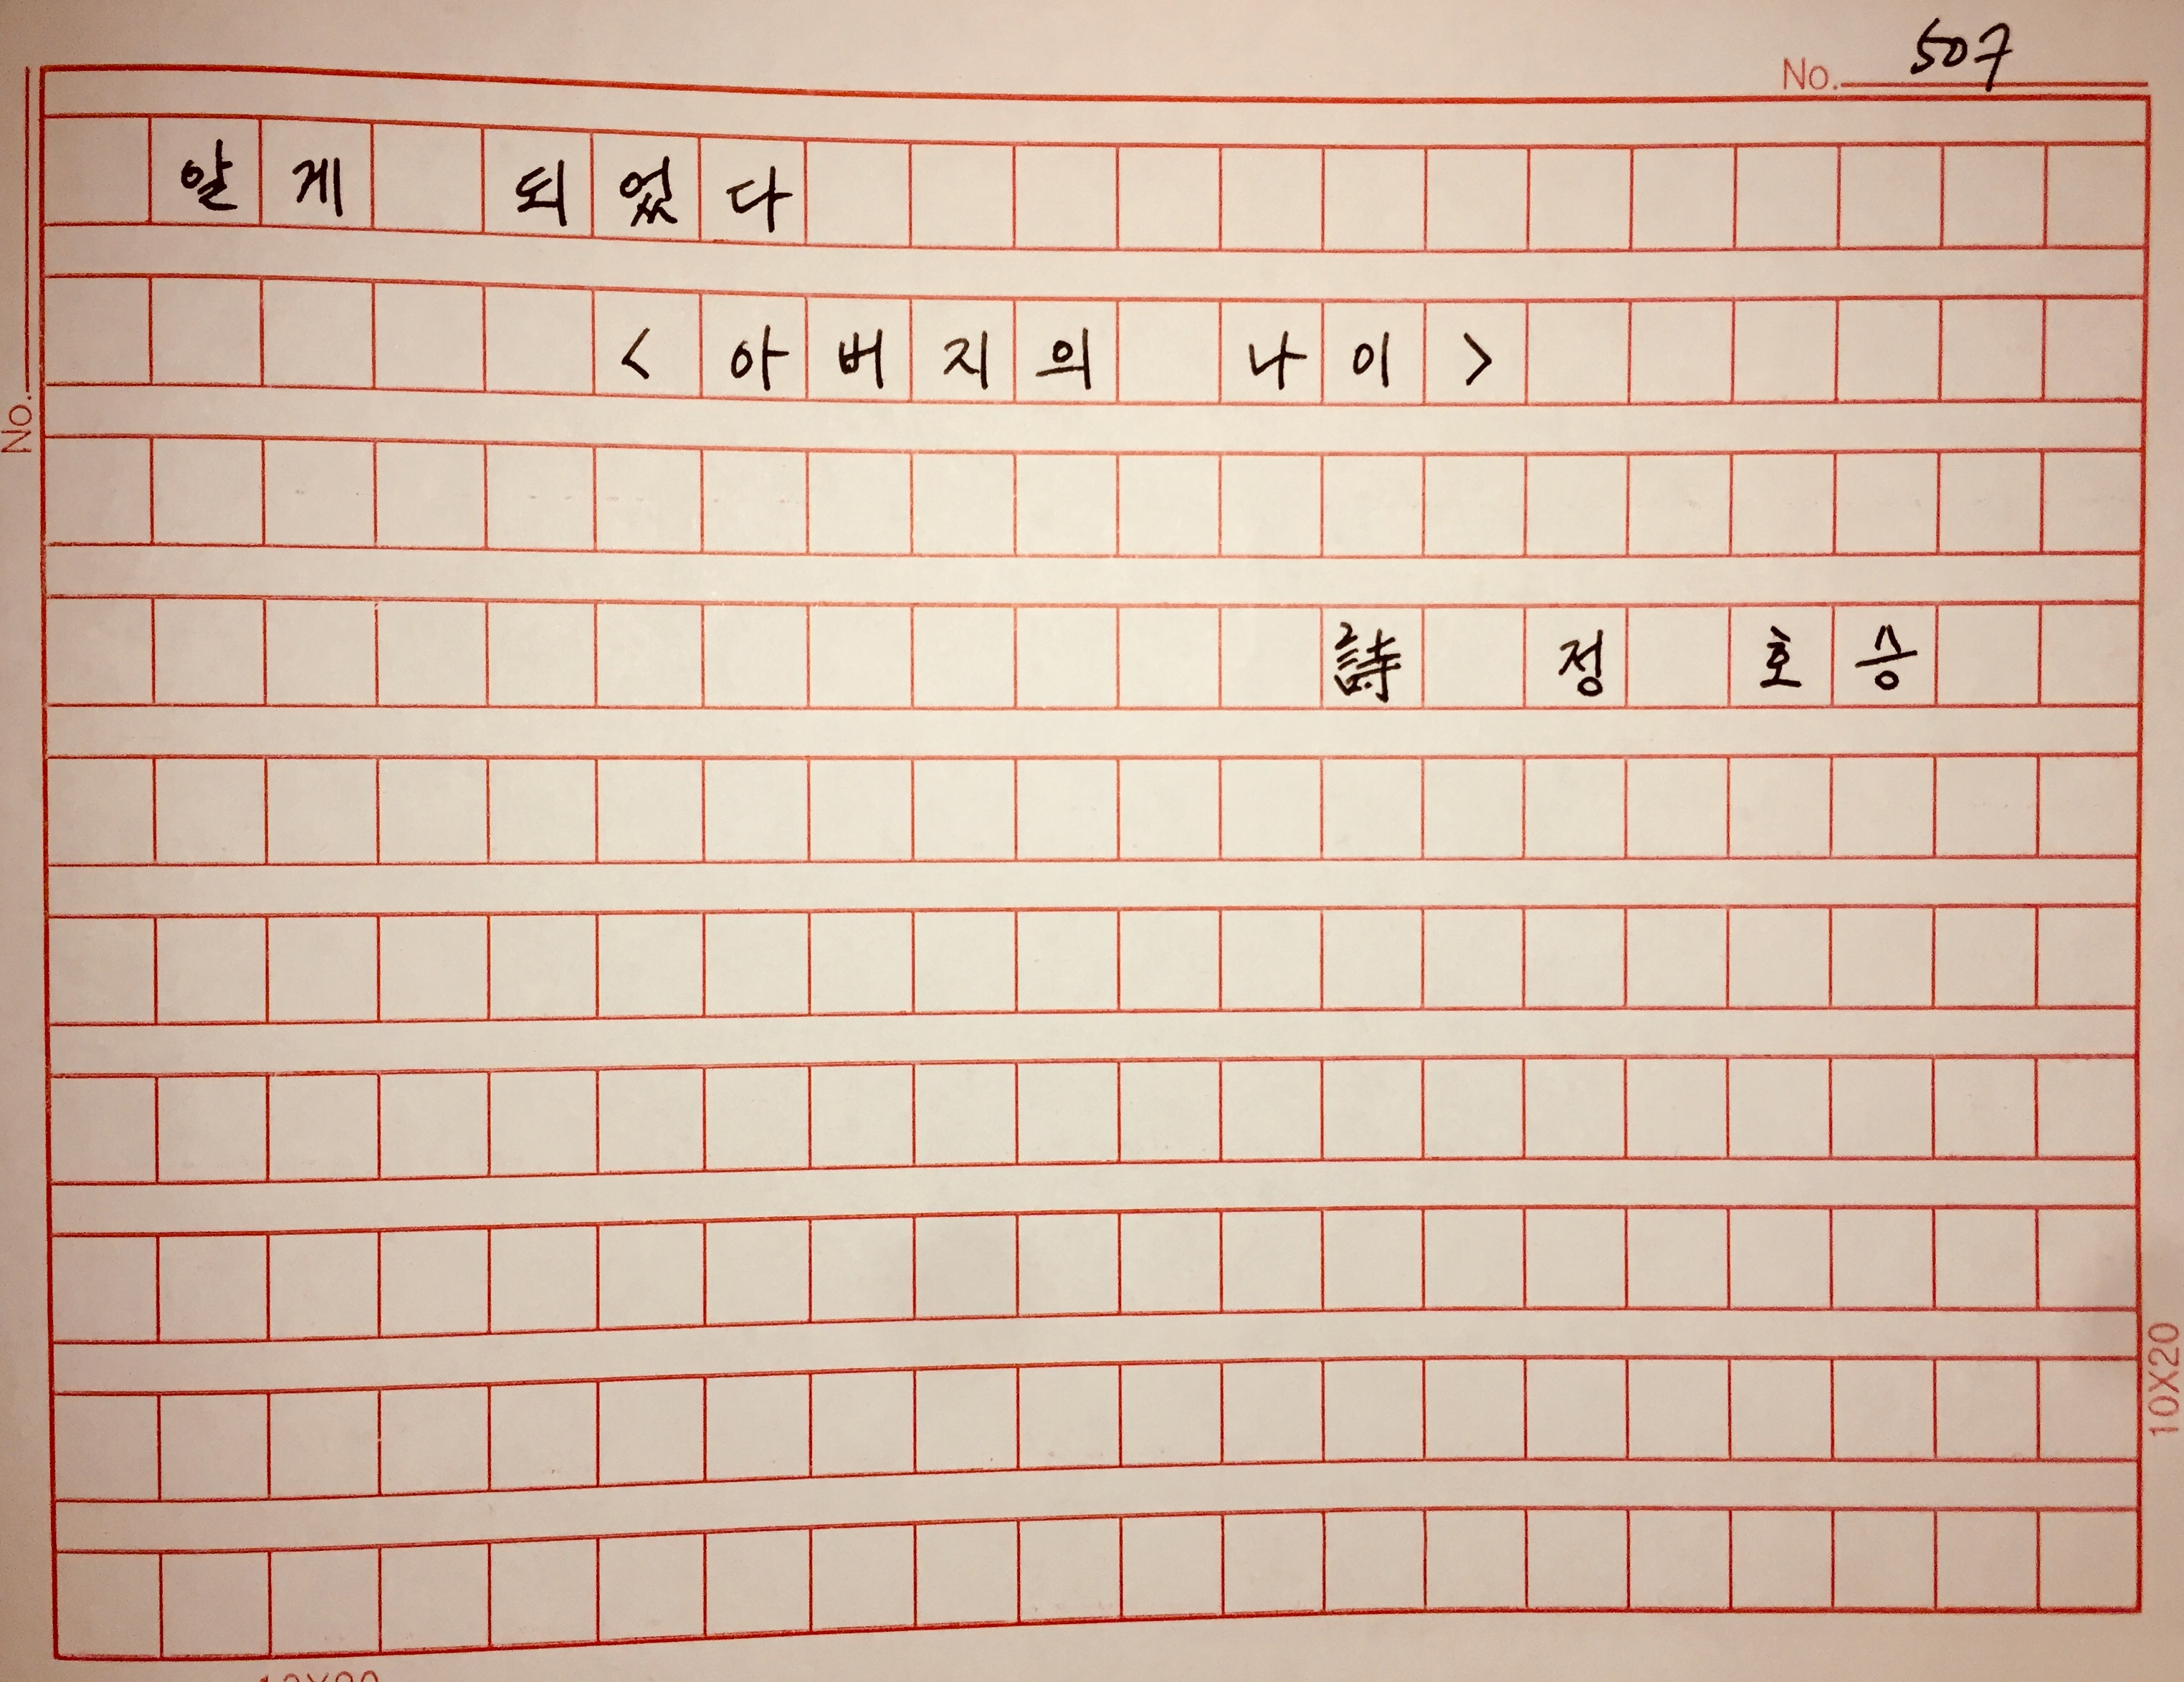 No. 507
알게 되었다
<아버지의 나이>
No.
詩 정 호승
10X20